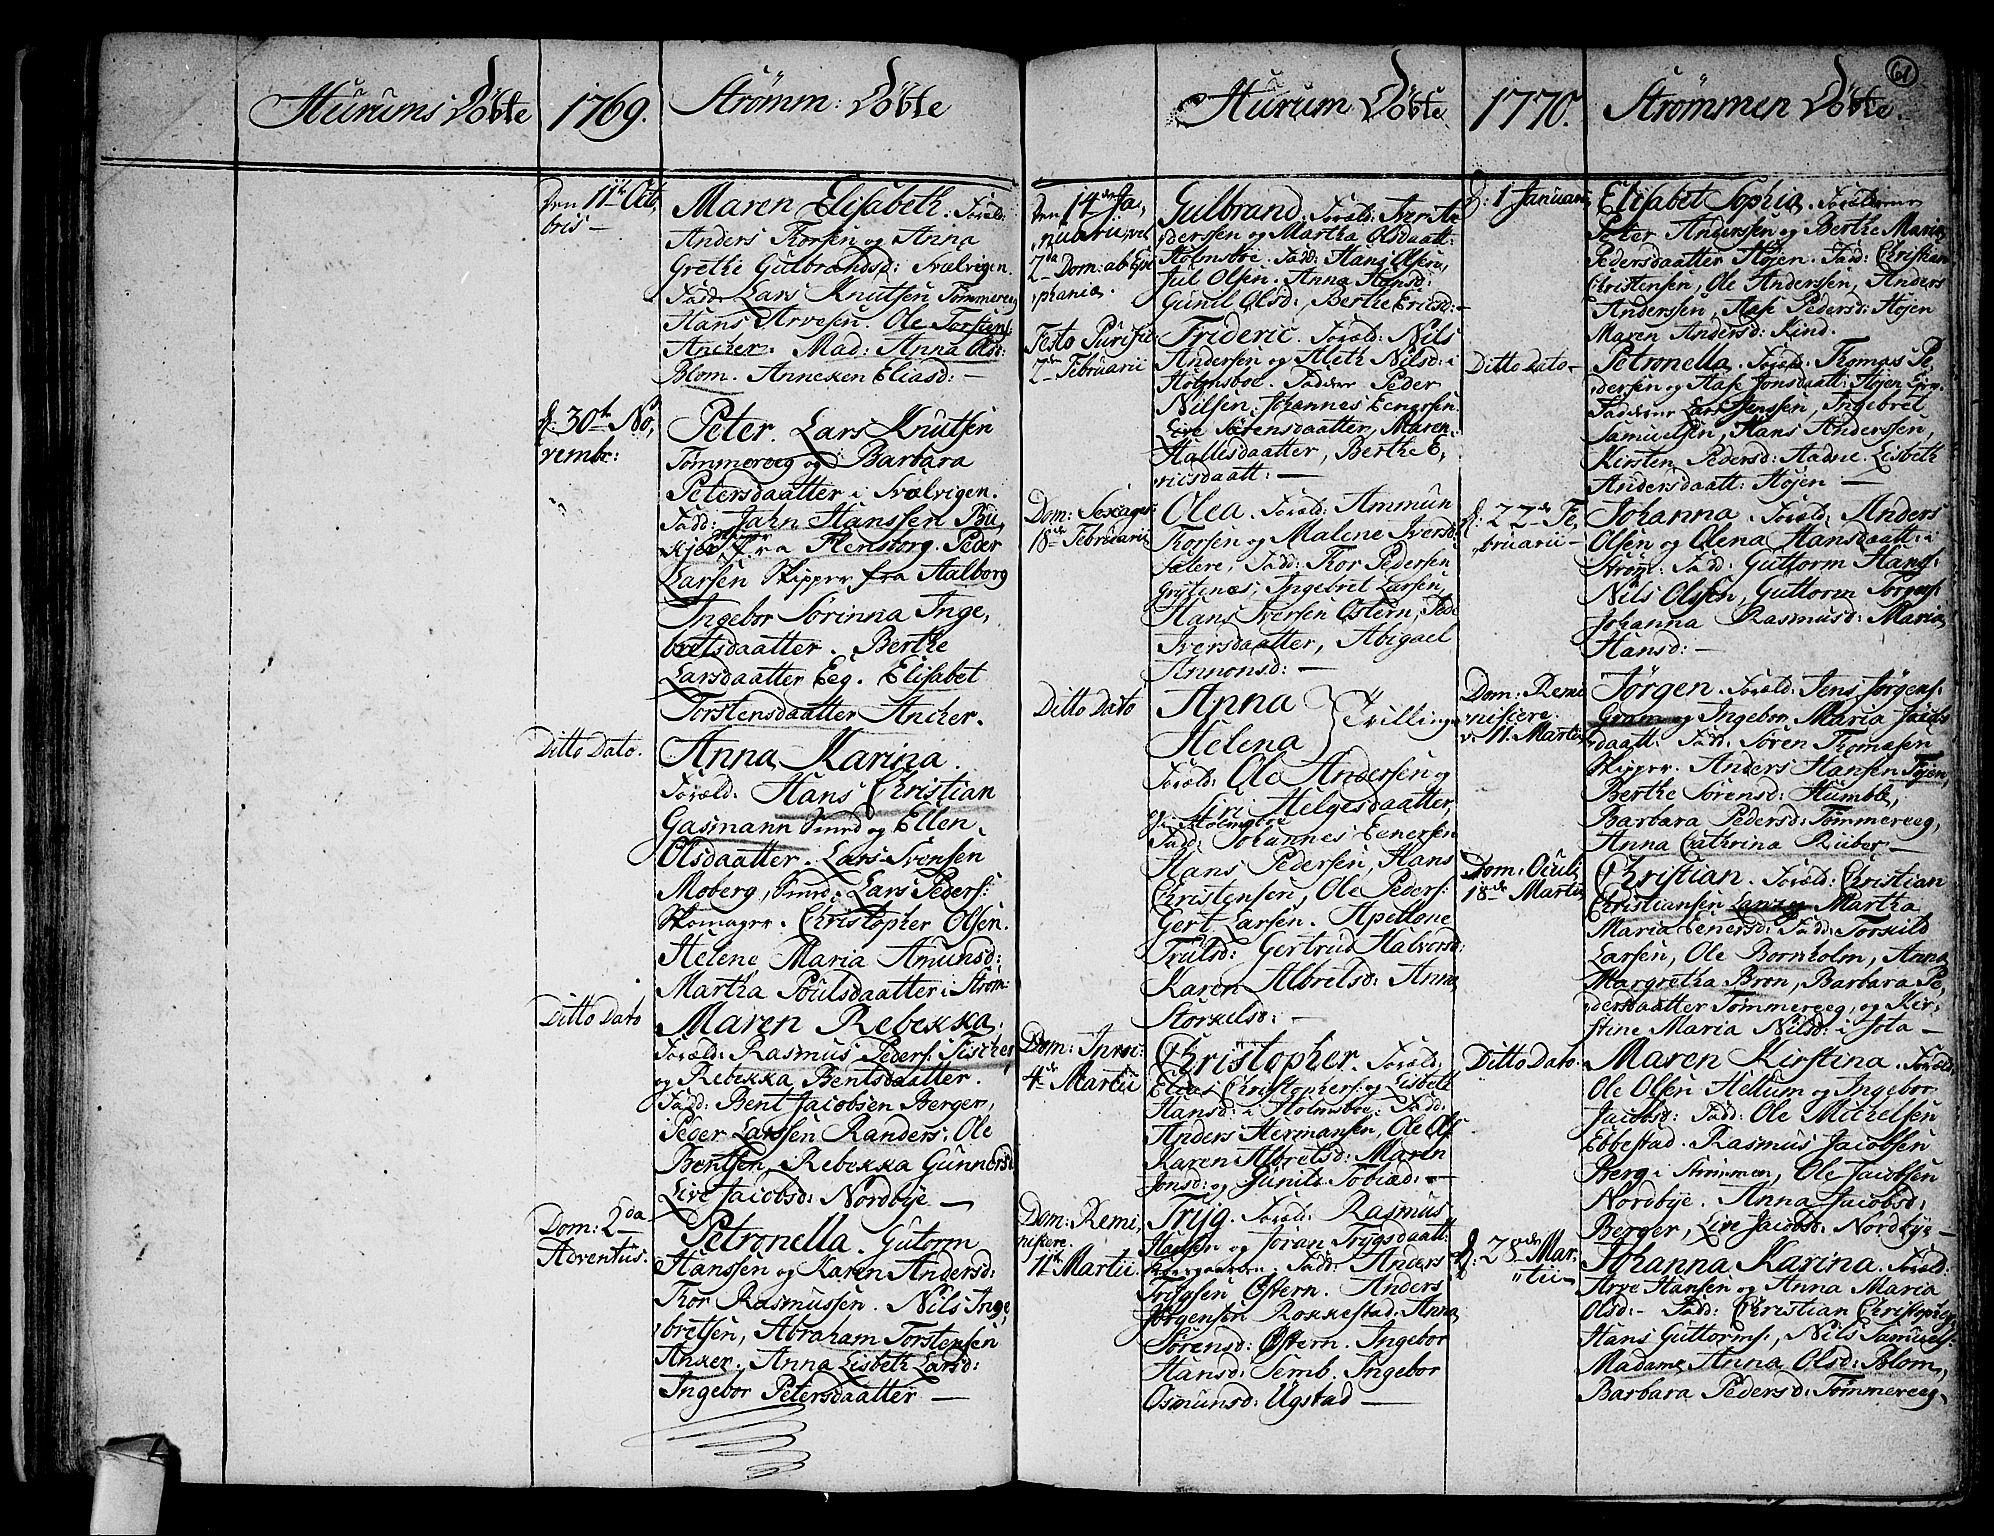 Hurums Döbte
1769.
Strømm: Döbte
Den 11te Octo
bris —
Maren Elisabeth. Foræld:
Anders Thorsen og Anna
Grethe Gulbrandsd: Svælvigen.
Fadd. Lars Knutsen Tømmereeg
Hans Arvesen. Ole Torstens:
Ancher. Mad: Anna Olsd:
Blom. Anneken Eliasd: —
d. 30te No,
vembr:
Peter. Lars Knutsen
Tømmereeg og Barbara
Petersdaatter i Svælvigen.
Fadd: Jahn Hanssen Bu,
kjer, Skippr fra Flensborg. Peder
Larsen Skipper fra Aalborg
Ingebor Sørinna Inge,
bretsdaatter. Berthe
Larsdaatter Eeg. Elisabet
Torstensdaatter Ancher.
Ditto Dato.
Anna Karina.
Foræld: Hans Christian
Gasmann Smed og Ellen
Olsdaatter. Lars Svensen
Moberg, Smed, Lars Peders:
Skomager. Christopher Olsen.
Helene Maria Amunsd:
Martha Poulsdaatter i Strøm:
Ditto Dato
Maren Rebekka.
Foræld: Rasmus Peders: Fischer
og Rebekka Bentsdaatter.
Fadd: Bent Jacobsen Berger,
Peder Larssen Randers. Ole
Bentsen, Rebekka Gunnersd
Live Jacobsd: Nordbye —
Dom: 2da
Adventus.
Petronella. Gutorm
Hanssen og Karen Andersd:
Thor Rasmussen. Nils Inge,
bretsen, Abraham Torstensen
Anker. Anna Lisbeth Larsd:
Ingebor Petersdaatter —
61
Hurum Döbte
1770.
Strømmen Döbte.
Den 14de Ja,
nuarii, vel
2da Dom: ab Epi
phania.
Gulbrand. Foræld: Iver An
dersen og Martha Olsdaatt:
Holmsboe. Fadd: Hans Olsen,
Jul Olsen. Anna Hansd:
Gunil Olsd: Berthe Ericsd: —
Festo Purific:
2de Februarii
Frideric. Foræld: Nils
Andersen og Aleth Nilsd: i
Holmsboe. Faddere Peder
Nilsen, Johannes Eenersen.
Live Sørensdaatter, Maren
Hallesdaatter, Berthe E,
ricsdaatt: —
Dom: Sexages:
18de Februarii
Olea. Foræld: Ammun
Thorsen og Malene Iversd:
Sætere, Fadd: Thor Pedersen
Grytenæs, Ingebret Larsen
Hans Iversen Østern,
Iversdaatter, Abigael
Ammonsd: —
Ditto Dato
Anna
Helena
Tvillinge
Foræld: Ole Andersen og
Siri Helgesdaatter,
i Holmsboe
Fadd: Johannes Eenersen
Hans Pedersen, Hans
Christensen, Ole Peders:
Gert Larsen. Apellone
Trulsd: Gertrud Halvorsd:
Karen Albretsd: Anne
Storkelsd: —
Dom: Invoc:
4de Martii
Christopher. Foræld:
Elias Christophers: og Lisbeth
Hansd: i Holmsboe. Fadd:
Anders Hermansen, Ole Ols:
Karen Albretsd: Maren
Jonsd: og Gunild Tobiæd: —
Dom: Remi,
niscere.
11te Martii.
Tryg. Foræld: Rasmus
Hansen og Jøran Trygsdaatt:
Fadd: Anders
Trygsen Østern. Anders
Jørgensen Rokkestad. Anna
Sørensd: Østern. Ingebor
Hansd: Semb. Ingebor
Osmunsd: Ugstad —
d. 1 Januarii
Elisabet Sophia. Forældrene
Peter Anderssen og Berthe Maria
Pedersdaatter Højen. Fadd: Christian
Christensen, Ole Anderssen, Anders
Anderssen, Aase Pedersd: Højen
Maren Andersd: Kind.
Ditto Dato —
Petronella. Foræld: Thomas Pe,
dersen og Aase Jonsdaatt: Højen
Faddere Lars Jenssen, Ingebret
Samuelsen, Hans Anderssen,
Kirsten Pedersd: Aadne. Lisbeth
Andersdaatt: Højen —
d. 22de Fe,
bruarii —
Johanna. Foræld: Anders
Olsen og Olena Hansdaatt: i
Strøm: Fadd: Guttorm Hans:
Nils Olssen, Guttorm Torgers:
Johanna Rasmusd: Maria
Hansd: —
Dom: Remi
niscere.
11. Martii
Jørgen. Foræld: Jens Jørgens:
Gram og Ingebor Maria Jacobs
daatt: Fadd: Søren Thomasen
Skipper. Anders Hansen Højen,
Berthe Sørensd: Humble,
Barbara Pedersd: Tømmereeg,
Anna Cathrina Rüiber —
Dom: Oculi
18de Martii
Christian. Foræld: Christian
Christiansen Lang og Martha
Maria Eenersd: Fadd: Torkild
Larsen, Ole Bornholm, Anna
Margretha Bron, Barbara Pe,
dersdaatter Tømmereeg, og Kir,
stine Maria Nilsd: i Jota —
Ditto Dato.
Maren Kirstina. Foræld:
Ole Olsen Hellum og Ingebor
Jacobsd: Fadd: Ole Michelsen
Ebbestad. Rasmus Jacobsen
Berg i Strømmen, Ole Jacobsen
Nordbye. Anna Jacobsd:
Berger, Live Jacobsd: Nordbye —
d: 28de Mar,
tii —
Johanna Karina. Foræld:
Arve Hansen og Anna Maria
Olsd: — Fadd: Christian Christophers
Hans Guttorms:, Nils Samuels:
Madame Anna Olsd: Blom,
Barbara Pedersd: Tømmereeg.